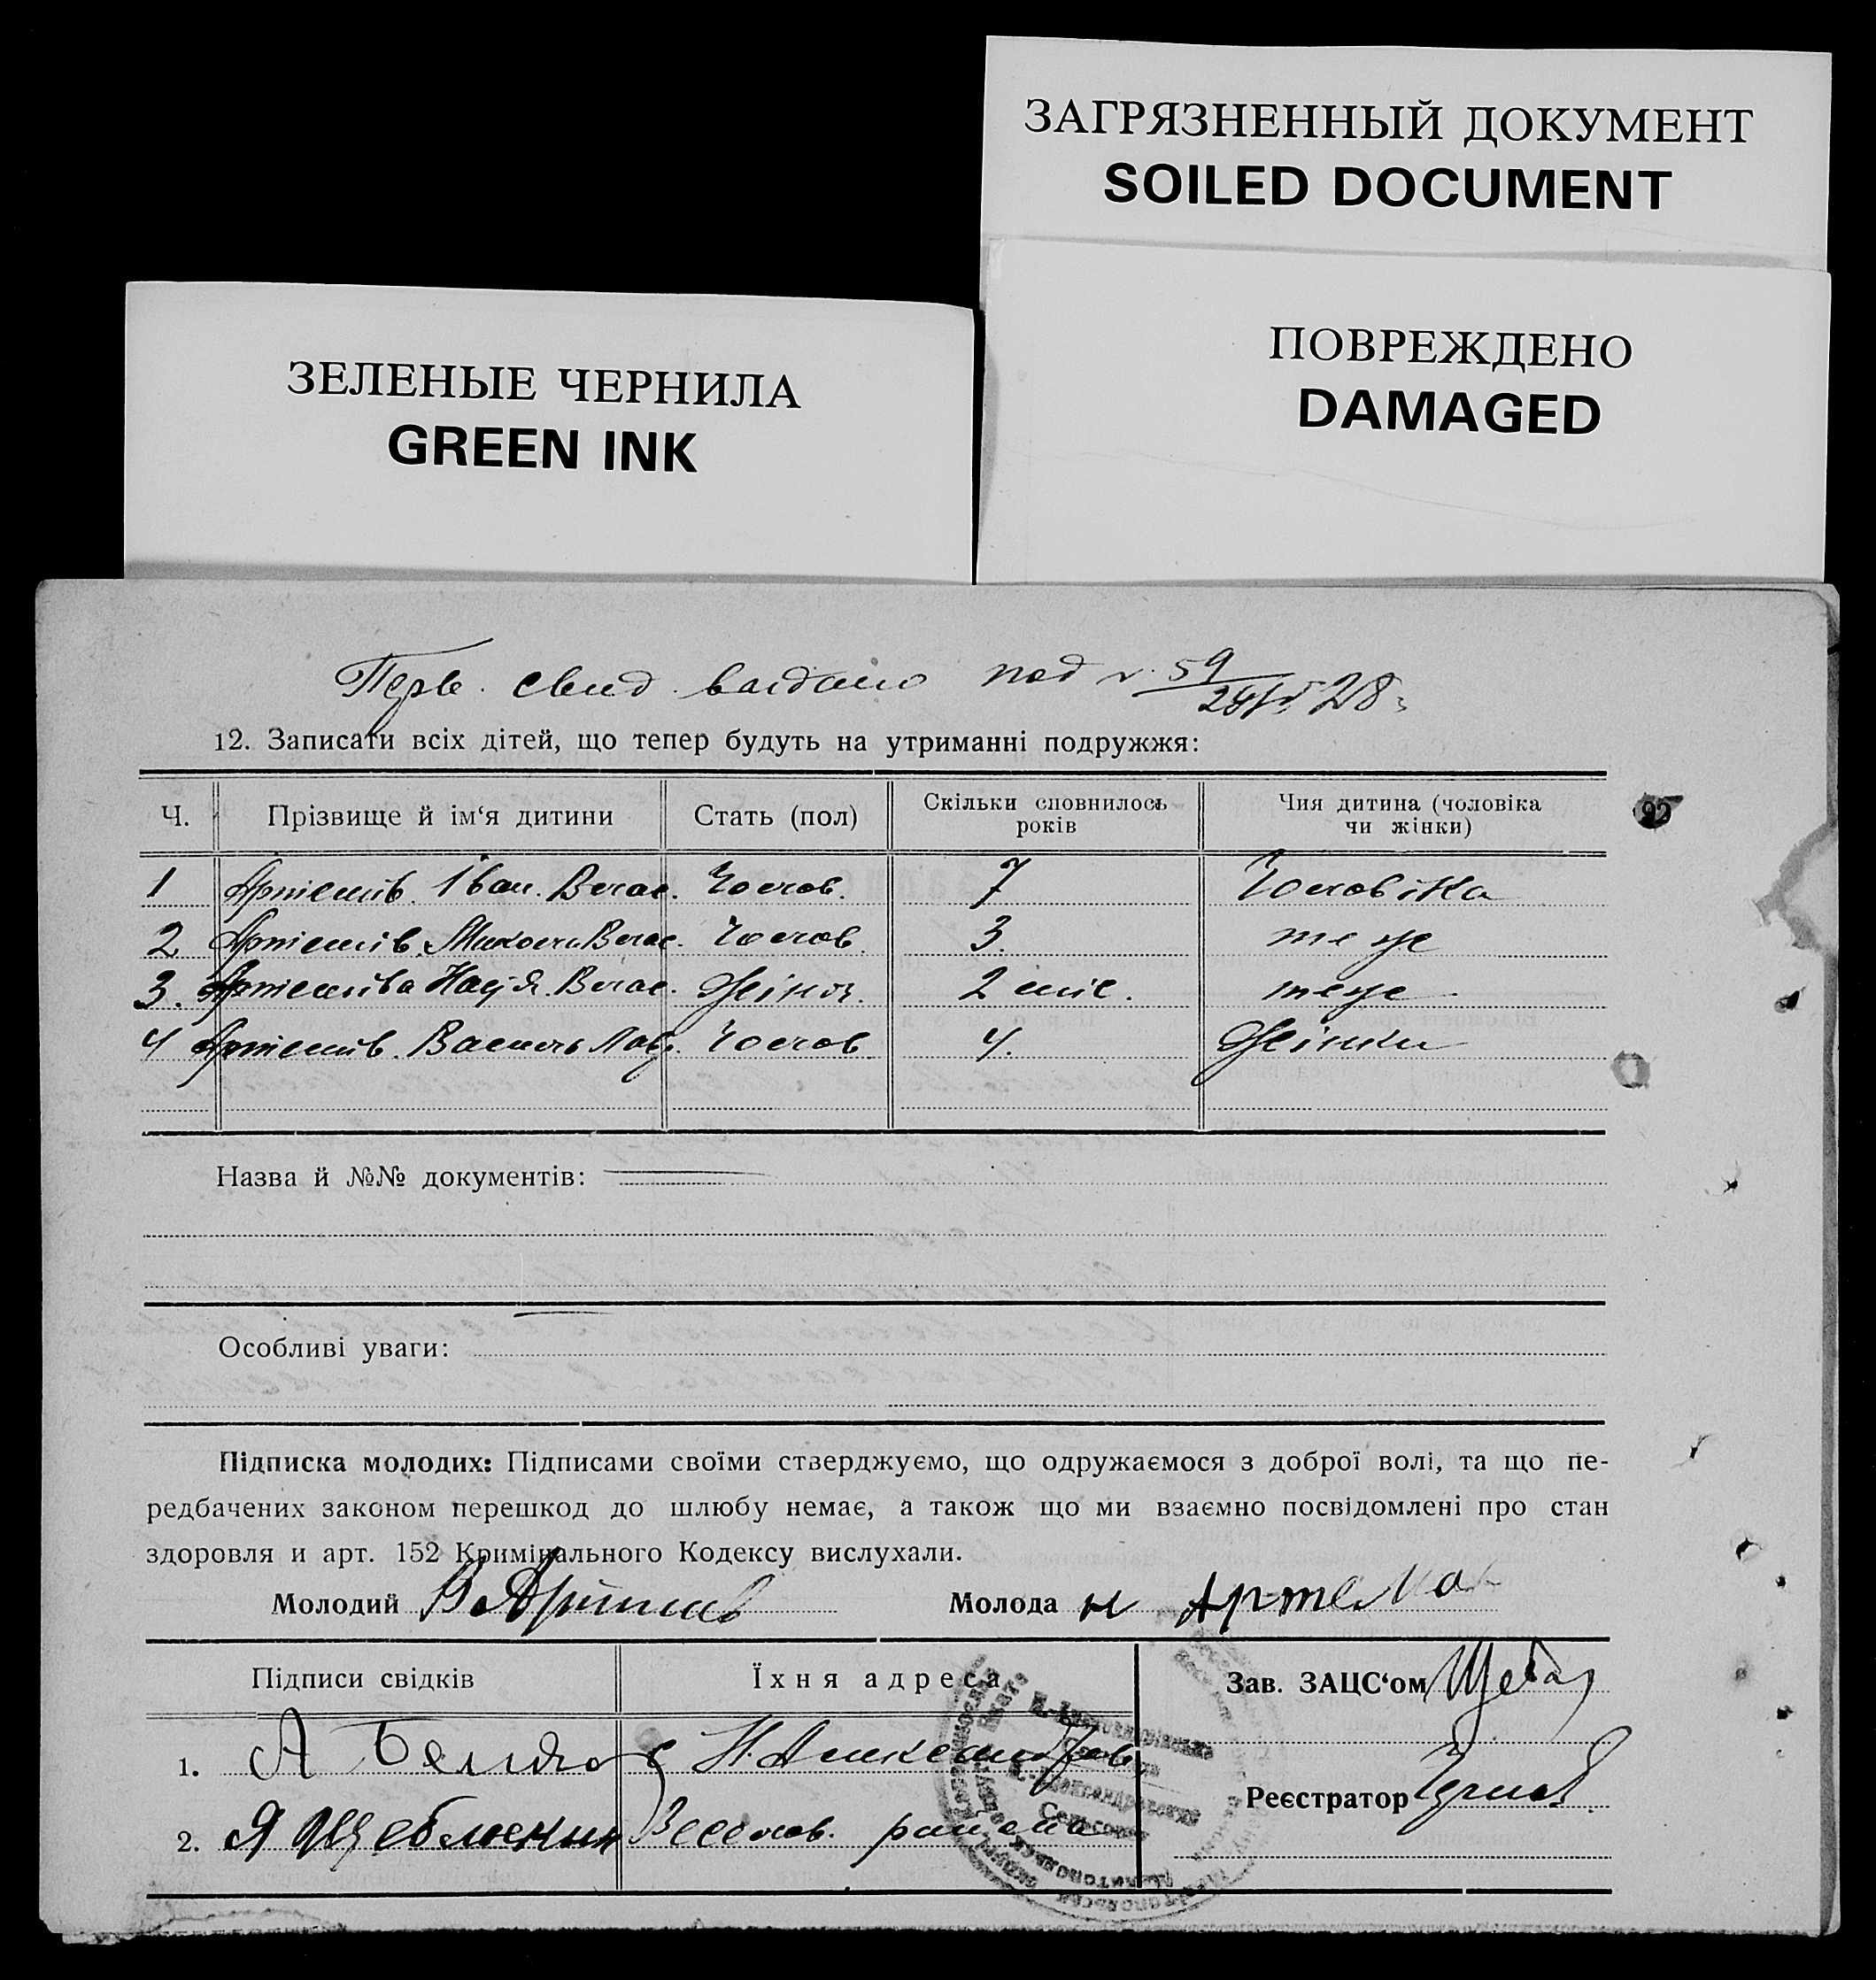 ЗАГРЯЗНЕННЫЙ ДОКУМЕНТ
SOILED DOCUMENT
ПОВРЕЖДЕНО
DAMAGED
ЗЕЛЕНЫЕ ЧЕРНИЛА
GREEN INK
свид. выдано под № 59
28
12. Записати всіх дітей, що тепер будуть на утриманні подружжя:
Ч. Прізвище й ім‘я дитини Стать (пол) Скільки сповнилось років Чия дитина (чоловіка чи жінки)
92
1 Артемів. Іван. Влас. Чолов. 7 Чоловіка
2 Артемів. Микола Влас. Чолов. 3. теж
3. Артемівa Надія. Влас. Жіноч. 2 міс. теж
4 Артемів. Василь Лавр. Чолов 4. Жінки
Назва й №№ документів:
Особливі уваги:
Підписка молодих: Підписами своїми стверджуємо, що одружаємося з доброї волі, та що пе-
редбачених законом перешкод до шлюбу немає, а також що ми взаємно посвідомлені про стан
здоровля и арт. 152 Кримінального Кодексу вислухали.
Молодий В Артемів Молода Н Артемов
Підписи свідків Їхня адреса Зав. ЗАЦС‘ом
1. А с Н. Александров
Реєстратор
2. Я Щеблыкин Веселов. района